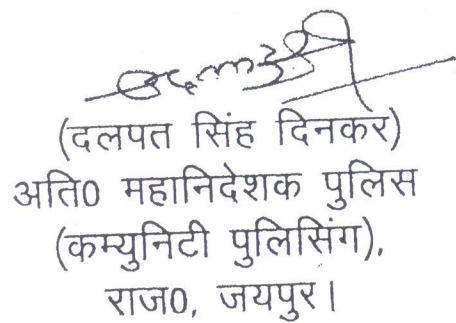 (दलपत सिंह दिनकर)
अति0 महानिदेशक पुलिस
(कम्युनिटी पुलिसिंग),
राज0, जयपुर।